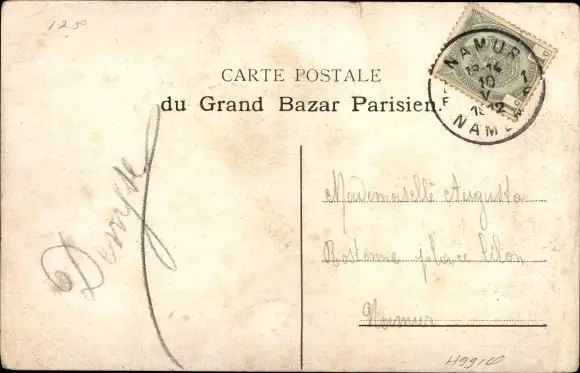 125
CARTE POSTALE
du Grand Bazar Parisien.
NAMUR 1
10
V
NAM
Denyse
Mademoiselle Augusta
place Léon
Namur
H9910